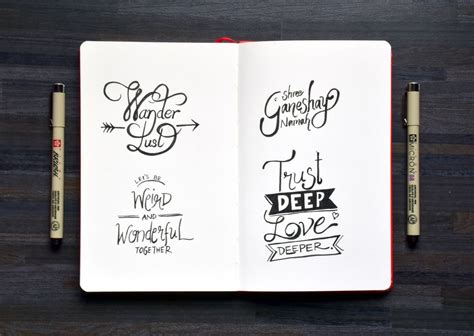 Wander
Lust
LET'S BE
Weird
AND
Wonderful
TOGETHER.
Shree
Ganeshay
Namah
Trust
DEEP
Love
DEEPER
MICRON